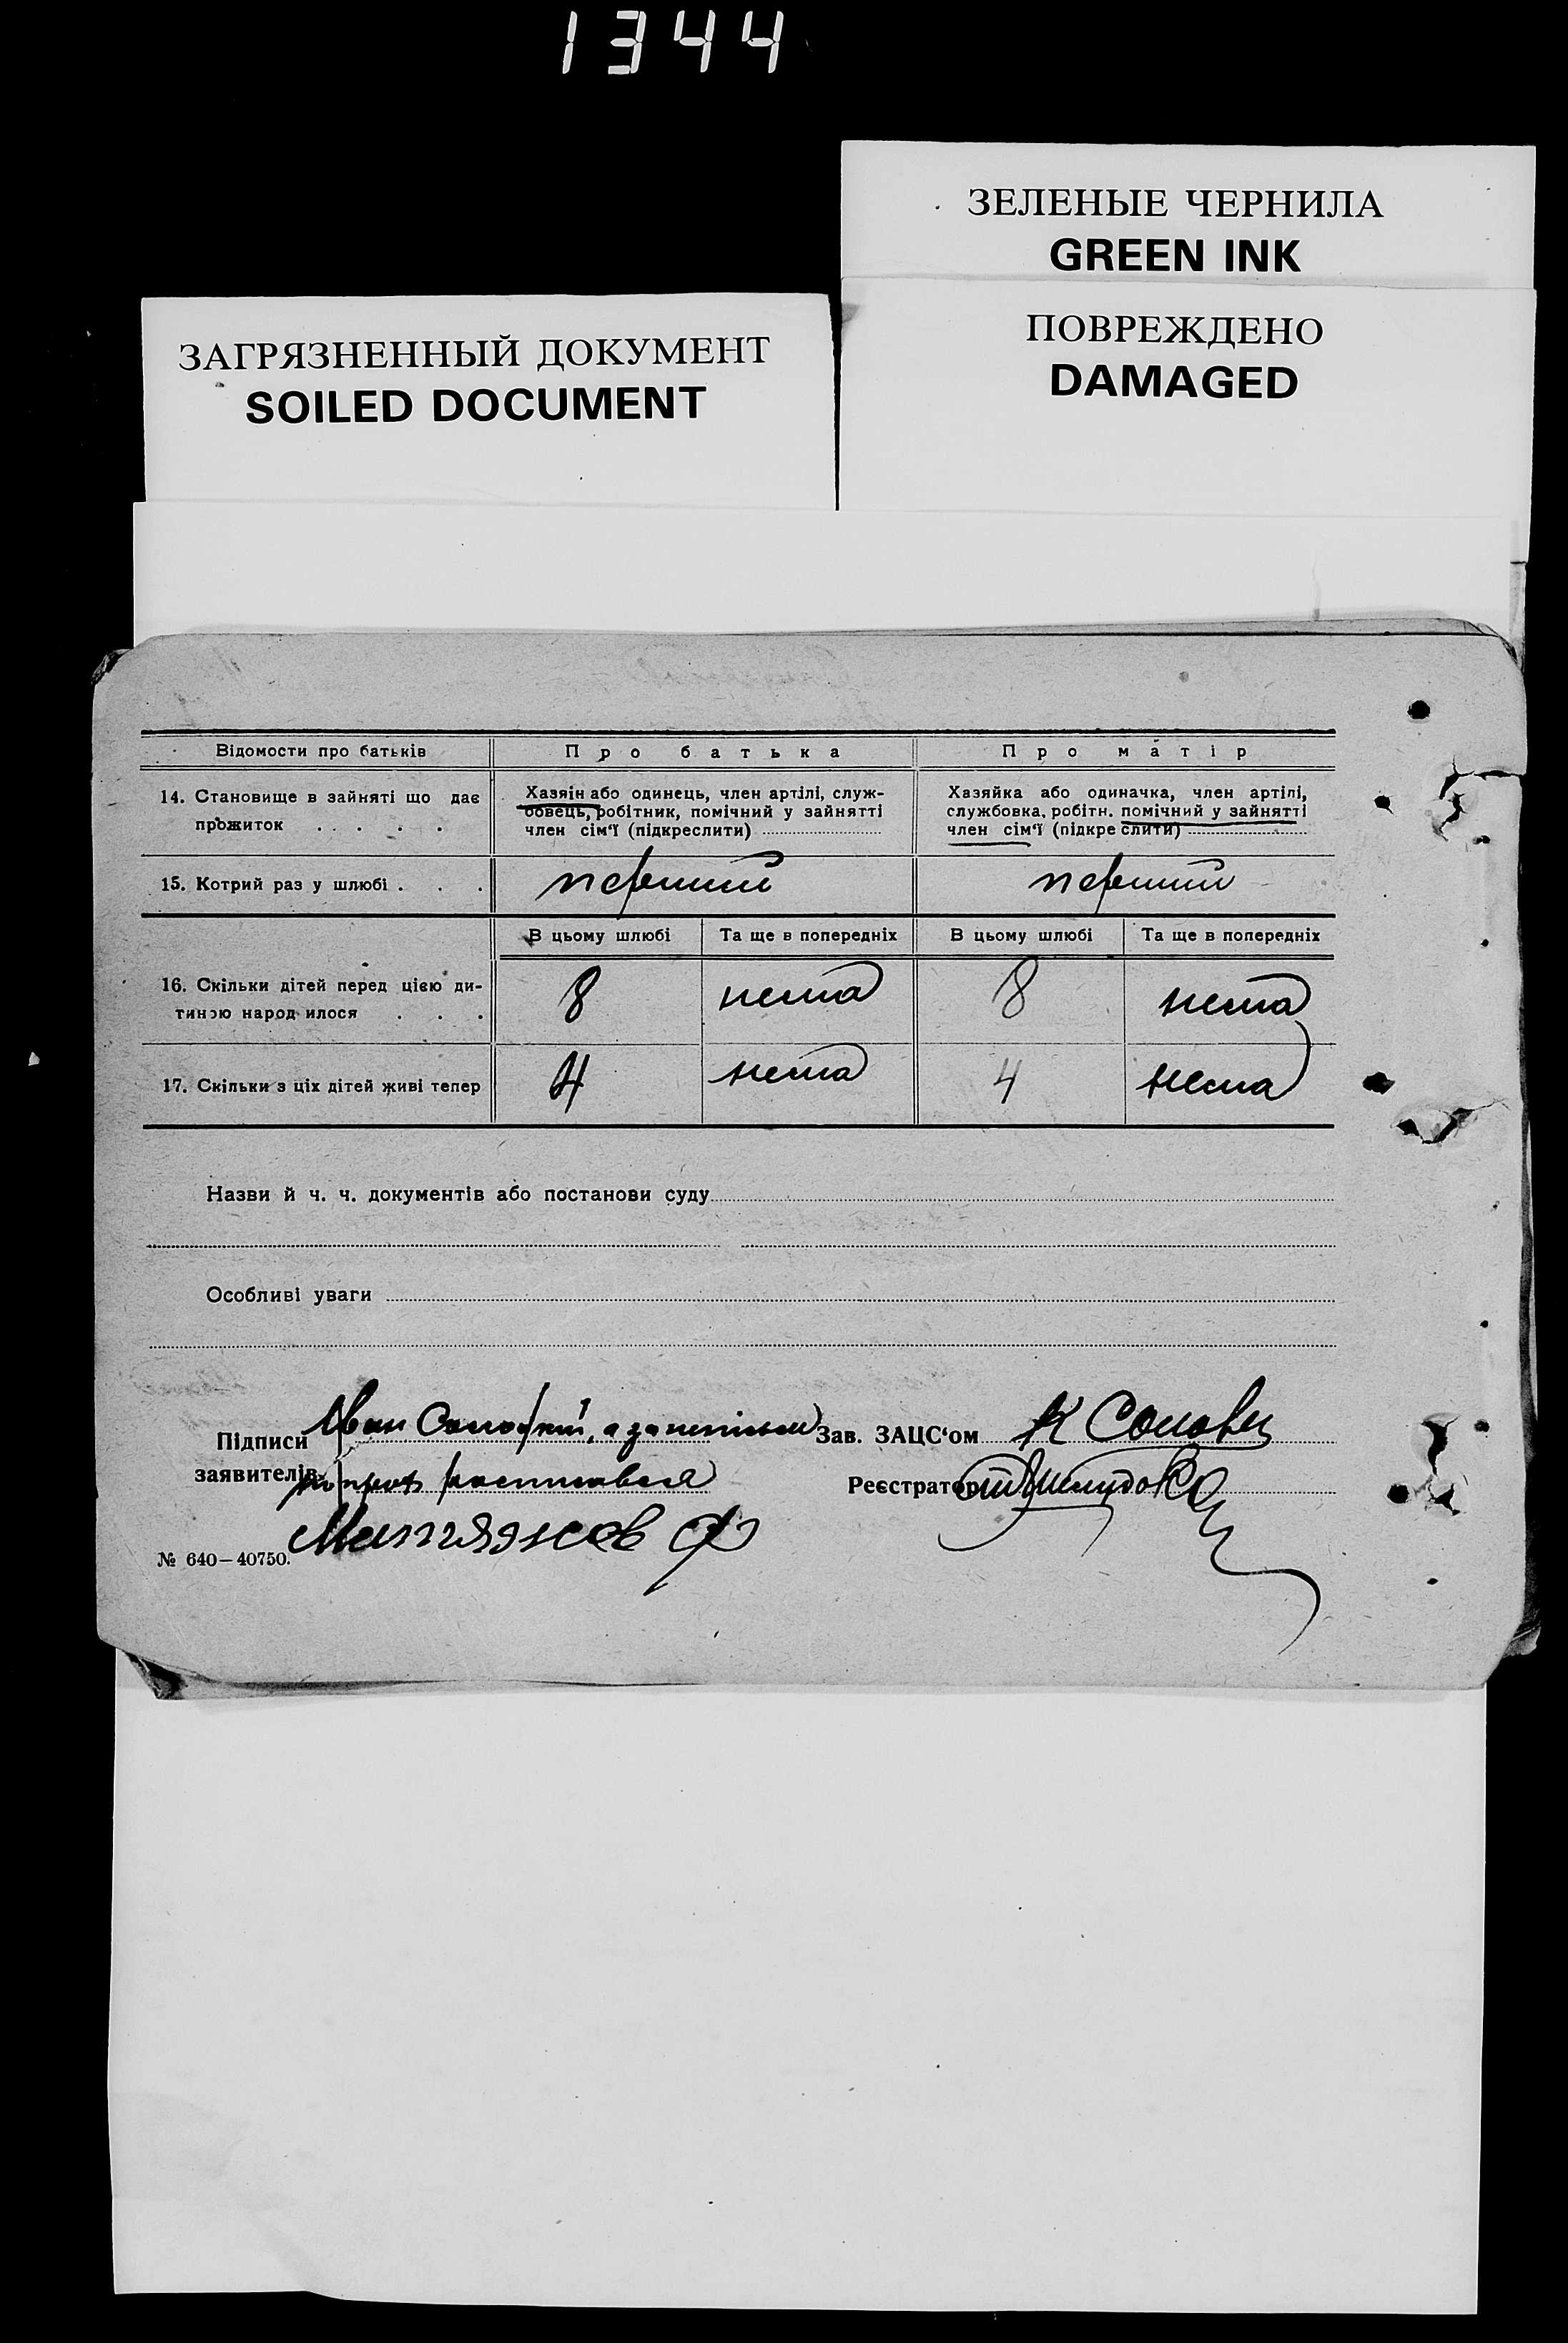 1344
ЗЕЛЕНЫЕ ЧЕРНИЛА
GREEN INK
ПОВРЕЖДЕНО
DAMAGED
ЗАГРЯЗНЕННЫЙ ДОКУМЕНТ
SOILED DOCUMENT
Відомости про батьків
Про батька
Про матір
14. Становище в зайняті що дає
прожиток . . . .
Хазяїн або одинець, член артілі, служ-
бовець, робітник, помічний у зайнятті
член сім'ї (підкреслити)
Хазяйка або одиначка, член артілі,
службовка, робітн. помічний у зайнятті
член сім'ї (підкреслити)
15. Котрий раз у шлюбі . . .
перший
перший
В цьому шлюбі
Та ще в попередніх
В цьому шлюбі
Та ще в попередніх
16. Скільки дітей перед цією ди-
тиною народилося . . .
8
нема
8
нема
17. Скільки з ціх дітей живі тепер
4
нема
4
нема
Назви й ч. ч. документів або постанови суду
Особливі уваги
Підписи
Іван
а
заявителів
Зав. ЗАЦС'ом
К
Реєстратор
№ 640–40750.